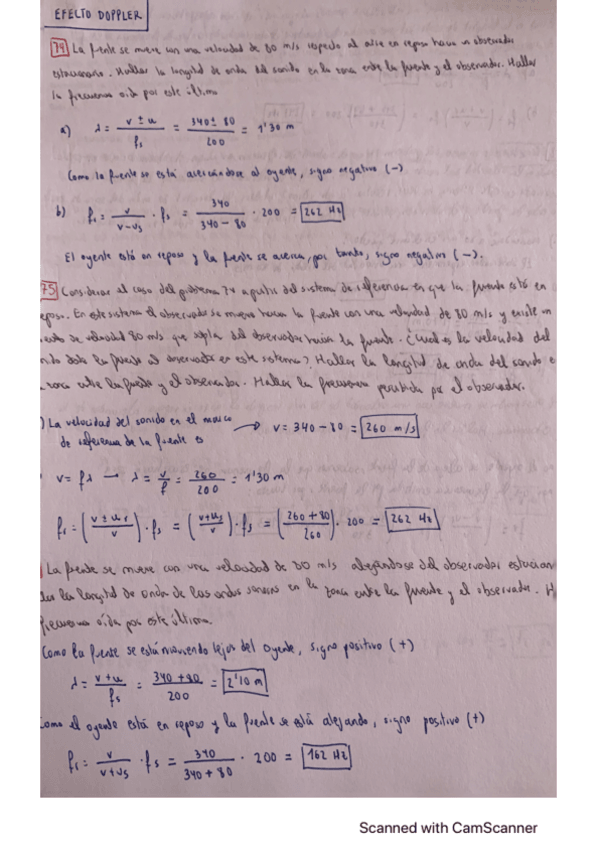 EFECTO DOPPLER
74 La fuente se mueve con una velocidad de 80 m/s respecto al aire en reposo hacia un observador
estacionario. Hallar la longitud de onda del sonido en la zona entre la fuente y el observador. Hallar
la frecuencia oída por este último
a) λ = (v ± u)/fs = (340 ± 80)/200 = 1'30 m
Como la fuente se está acercándose al oyente, signo negativo (-)
b) fr = v/(v-us) · fs = 340/(340 - 80) · 200 = 262 Hz
El oyente está en reposo y la fuente se acerca, por tanto, signo negativo (-).
75 Considerar el caso del problema 74 a partir del sistema de referencia en que la fuente está en
eposo. En este sistema el observador se mueve hacia la fuente con una velocidad de 80 m/s y existe un
de velocidad 80 m/s que sopla del observador hacia la fuente. ¿Cuál es la velocidad del
desde la fuente al observador en este sistema? Hallar la longitud de onda del sonido e
zona entre la fuente y el observador. Hallar la frecuencia percibida por el observador.
) La velocidad del sonido en el marco
de referencia de la fuente es → v = 340 - 80 = 260 m/s
v = fλ → λ = v/f = 260/200 = 1'30 m
fr = ((v ± ur)/v) · fs = ((v+us)/v) · fs = ((260 + 80)/260) · 200 = 262 Hz
La fuente se mueve con una velocidad de 80 m/s alejándose del observador estacion
la longitud de onda de las ondas sonoras en la zona entre la fuente y el observador. H
frecuencia oída por este último.
Como la fuente se está moviendo lejos del oyente, signo positivo (+)
λ = (v+u)/fs = (340 + 80)/200 = 2'10 m
Como el oyente está en reposo y la fuente se está alejando, signo positivo (+)
fr = v/(v+us) · fs = 340/(340 + 80) · 200 = 162 Hz
Scanned with CamScanner